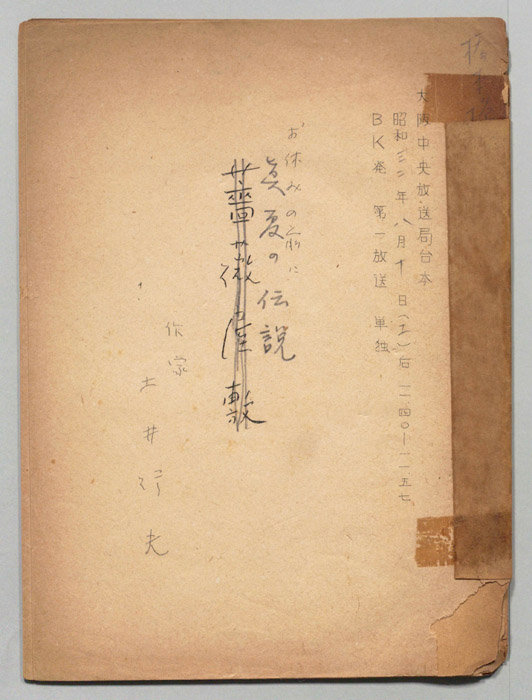 大阪中央放送局台本
昭和三二年八月十日(土)后一一・四〇―一一五七
BK発 第一放送 単独
お休みの前に
真夏の伝説
薔薇屋敷
作家
土井行夫